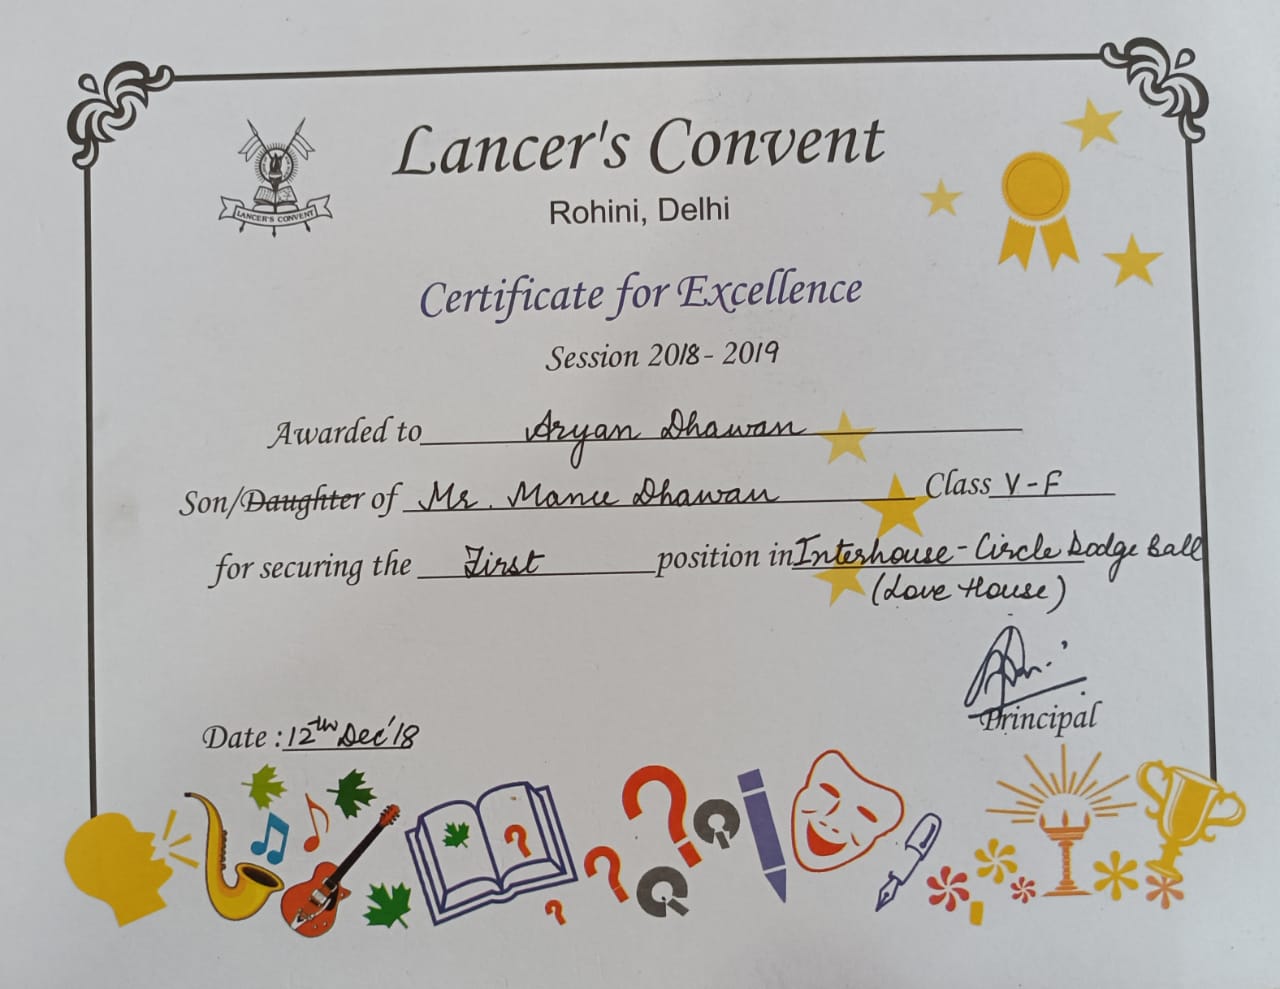 Lancer's Convent
LANCER'S CONVENT
Rohini, Delhi
Certificate for Excellence
Session 2018-2019
Awarded to Aryan Dhawan
Son/Daughter of Mr. Manu Dhawan Class V-F
for securing the First position in Interhouse-Circle Dodge Ball
(Love House)
Principal
Date : 12th Dec'18